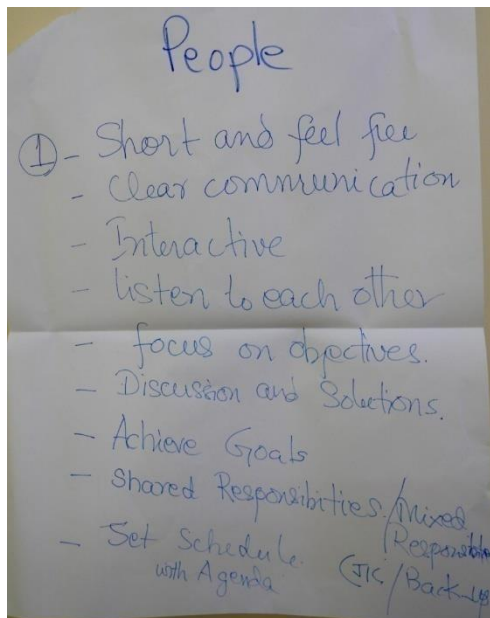 People
① - Short and feel free
- Clear communication
- Interactive
- listen to each other
- focus on objectives.
- Discussion and Solutions.
- Achieve Goals
- Shared Responsibities. / Mixed
Responsib
- Set Schedule. / Backups
with Agenda